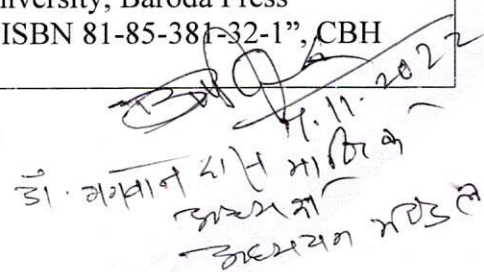 iversity, Baroda Press
ISBN 81-85-381-32-1”, CBH
.11.2022
डॉ. भगवान दास माणिक
अध्यक्ष
अध्ययन मण्डल